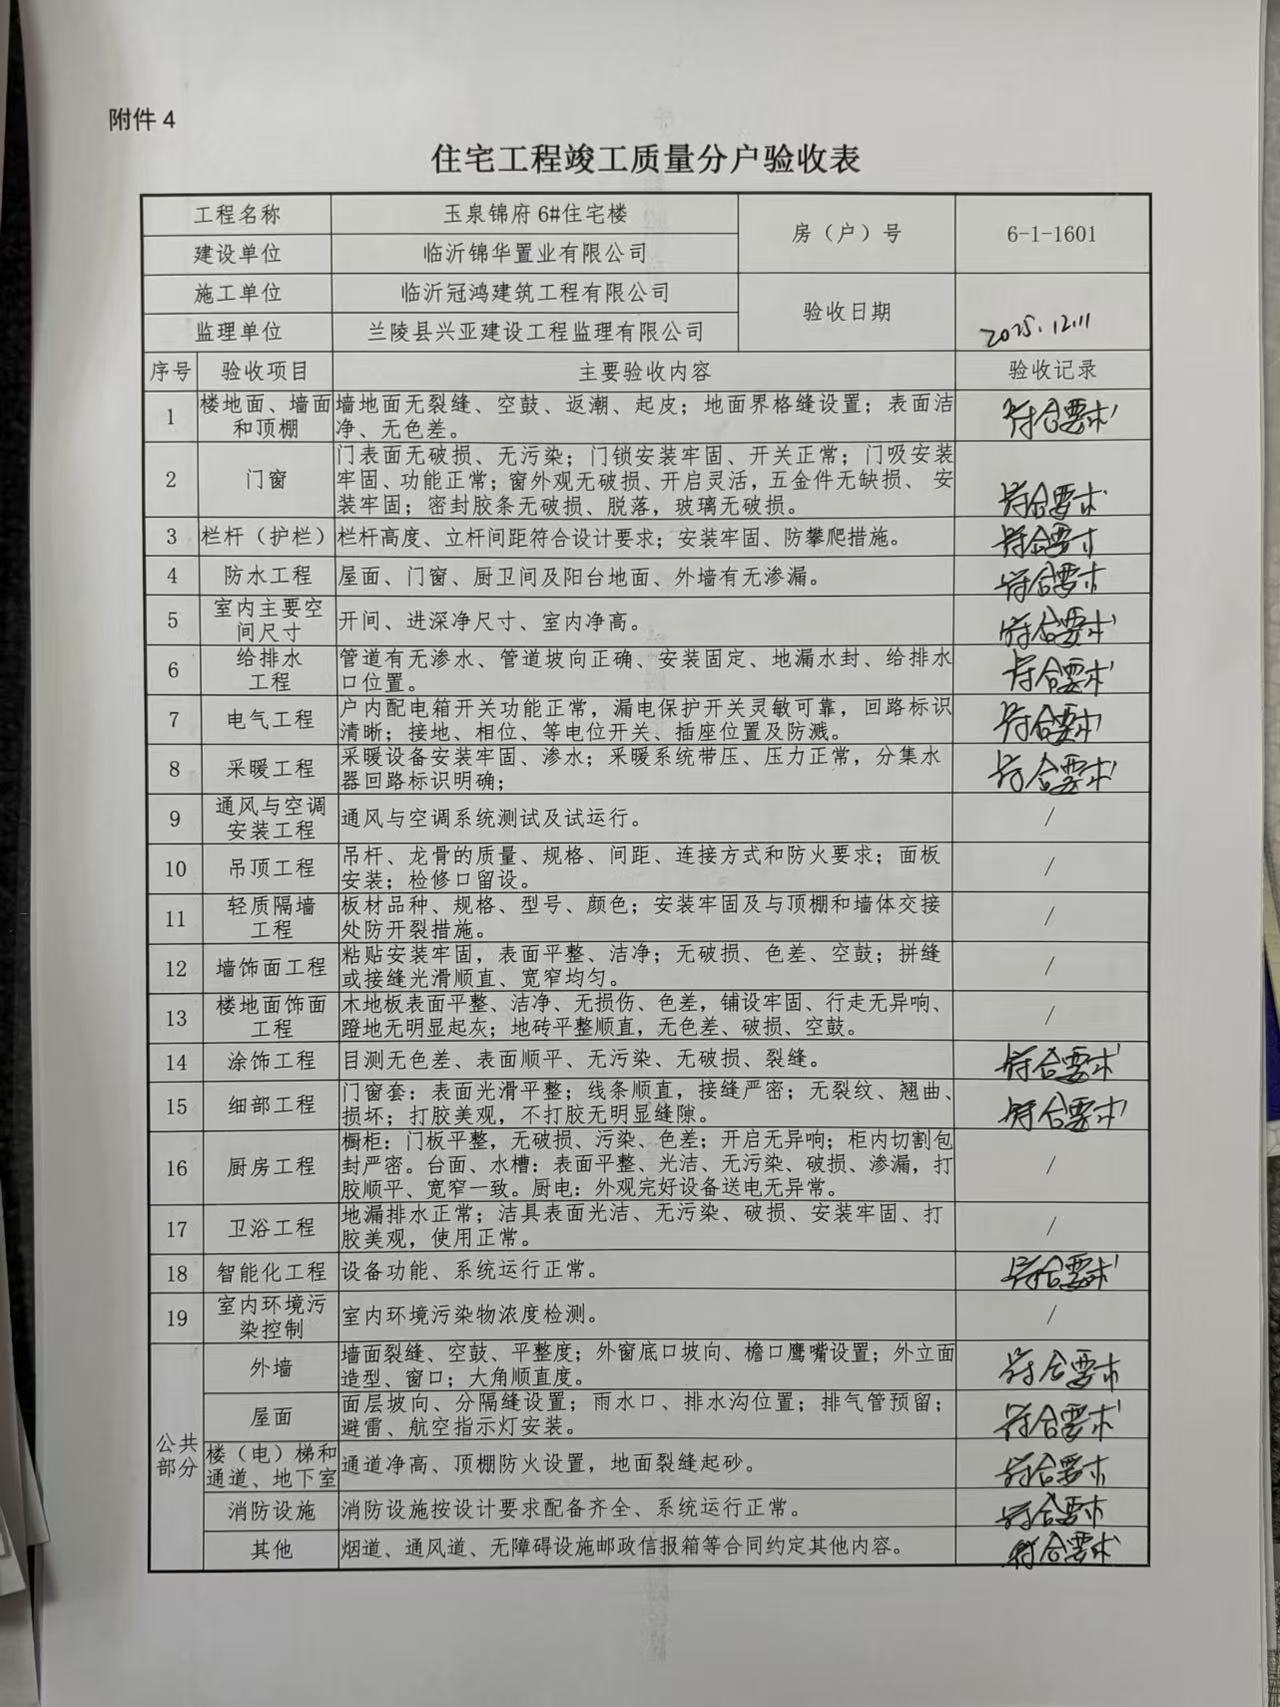 附件 4
住宅工程竣工质量分户验收表
工程名称 玉泉锦府 6#住宅楼 房（户）号 6-1-1601
建设单位 临沂锦华置业有限公司
施工单位 临沂冠鸿建筑工程有限公司 验收日期 2025.12.11
监理单位 兰陵县兴亚建设工程监理有限公司
序号 验收项目 主要验收内容 验收记录
1 楼地面、墙面和顶棚 墙地面无裂缝、空鼓、返潮、起皮；地面界格缝设置；表面洁 符合要求
净、无色差。
2 门窗 门表面无破损、无污染；门锁安装牢固、开关正常；门吸安装 符合要求
牢固、功能正常；窗外观无破损、开启灵活，五金件无缺损、 安
装牢固；密封胶条无破损、脱落，玻璃无破损。
3 栏杆（护栏） 栏杆高度、立杆间距符合设计要求；安装牢固、防攀爬措施。 符合要求
4 防水工程 屋面、门窗、厨卫间及阳台地面、外墙有无渗漏。 符合要求
5 室内主要空间尺寸 开间、进深净尺寸、室内净高。 符合要求
6 给排水工程 管道有无渗水、管道坡向正确、安装固定、地漏水封、给排水 符合要求
口位置。
7 电气工程 户内配电箱开关功能正常，漏电保护开关灵敏可靠，回路标识 符合要求
清晰；接地、相位、等电位开关、插座位置及防溅。
8 采暖工程 采暖设备安装牢固、渗水；采暖系统带压、压力正常，分集水 符合要求
器回路标识明确；
9 通风与空调安装工程 通风与空调系统测试及试运行。 /
10 吊顶工程 吊杆、龙骨的质量、规格、间距、连接方式和防火要求；面板 /
安装；检修口留设。
11 轻质隔墙工程 板材品种、规格、型号、颜色；安装牢固及与顶棚和墙体交接 /
处防开裂措施。
12 墙饰面工程 粘贴安装牢固，表面平整、洁净；无破损、色差、空鼓；拼缝 /
或接缝光滑顺直、宽窄均匀。
13 楼地面饰面工程 木地板表面平整、洁净、无损伤、色差，铺设牢固、行走无异响、 /
蹬地无明显起灰；地砖平整顺直，无色差、破损、空鼓。
14 涂饰工程 目测无色差、表面顺平、无污染、无破损、裂缝。 符合要求
15 细部工程 门窗套：表面光滑平整；线条顺直，接缝严密；无裂纹、翘曲、 符合要求
损坏；打胶美观，不打胶无明显缝隙。
16 厨房工程 橱柜：门板平整，无破损、污染、色差；开启无异响；柜内切割包 /
封严密。台面、水槽：表面平整、光洁、无污染、破损、渗漏，打
胶顺平、宽窄一致。厨电：外观完好设备送电无异常。
17 卫浴工程 地漏排水正常；洁具表面光洁、无污染、破损、安装牢固、打 /
胶美观，使用正常。
18 智能化工程 设备功能、系统运行正常。 符合要求
19 室内环境污染控制 室内环境污染物浓度检测。 /
公共部分 外墙 墙面裂缝、空鼓、平整度；外窗底口坡向、檐口鹰嘴设置；外立面 符合要求
造型、窗口；大角顺直度。
屋面 面层坡向、分隔缝设置；雨水口、排水沟位置；排气管预留； 符合要求
避雷、航空指示灯安装。
楼（电）梯和通道、地下室 通道净高、顶棚防火设置，地面裂缝起砂。 符合要求
消防设施 消防设施按设计要求配备齐全、系统运行正常。 符合要求
其他 烟道、通风道、无障碍设施邮政信报箱等合同约定其他内容。 符合要求